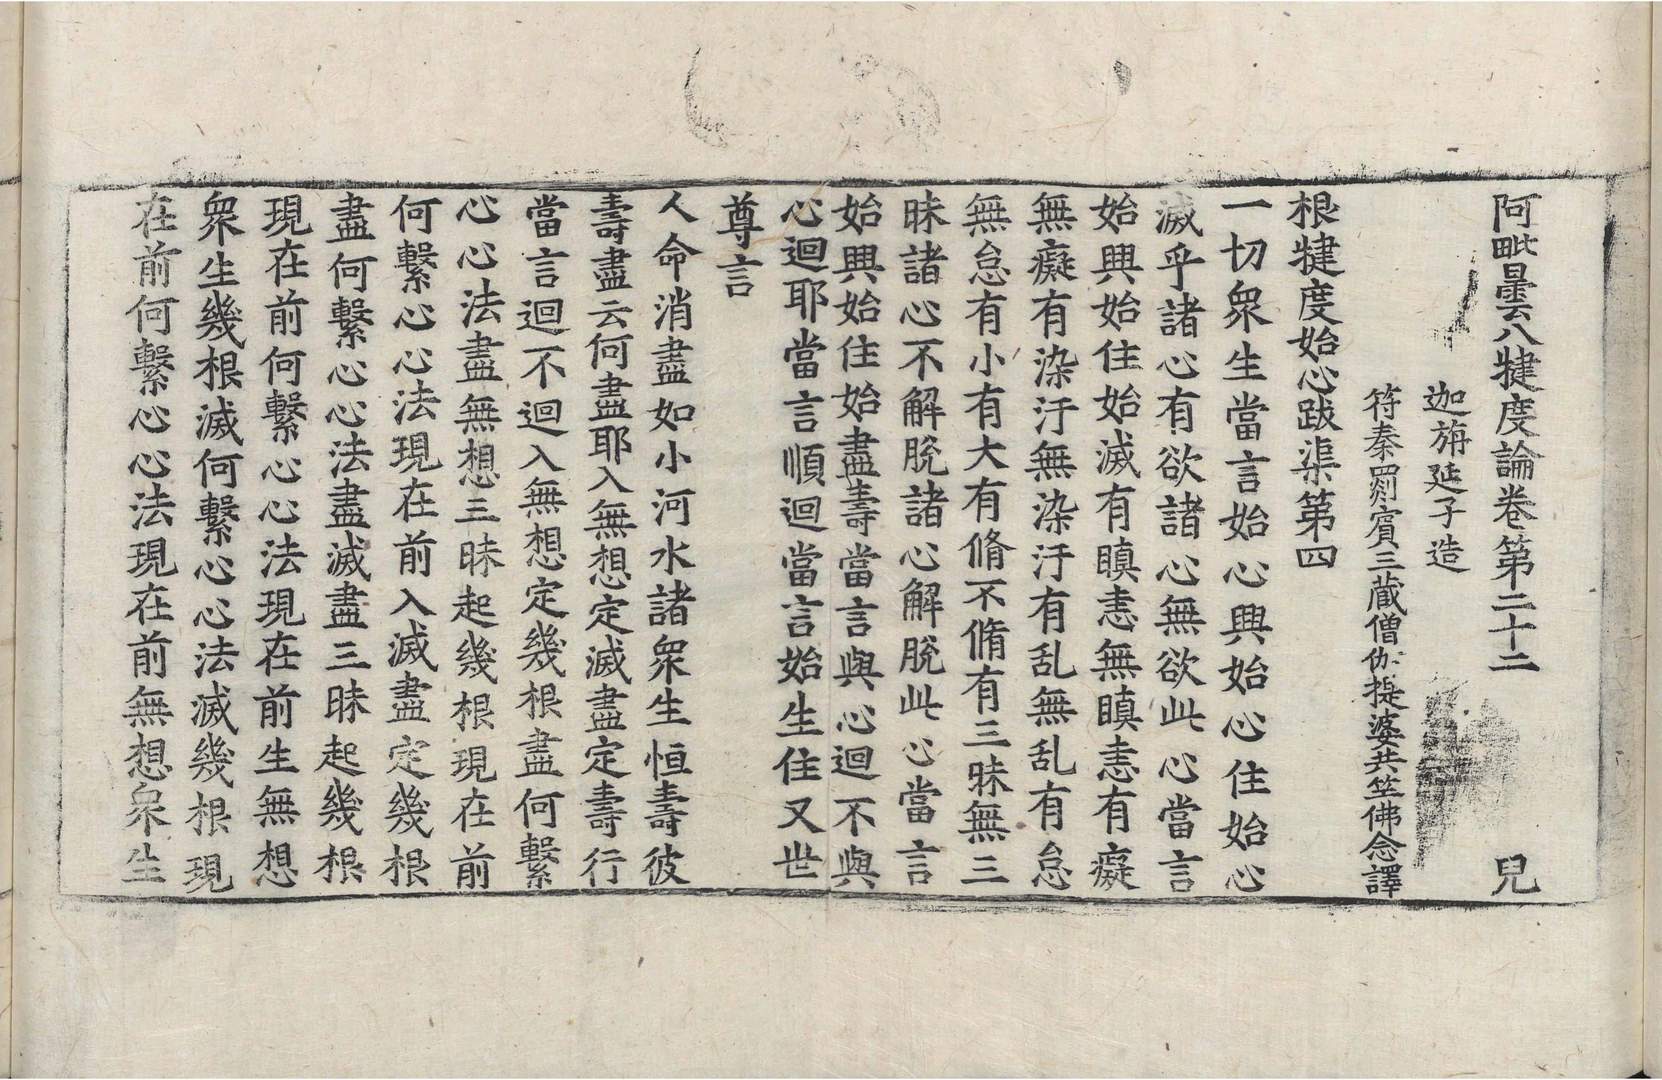 阿毗曇八犍度論卷第二十二　兒
迦旃延子造
符秦罽賓三藏僧伽提婆共竺佛念譯
根犍度始心跋渠第四
一切眾生當言始心興始心住始心
滅乎諸心有欲諸心無欲此心當言
始興始住始滅有瞋恚無瞋恚有癡
無癡有染汙無染汙有乱無乱有怠
無怠有小有大有脩不脩有三昧無三
昧諸心不解脫諸心解脫此心當言
始興始住始盡壽當言與心迴不與
心迴耶當言順迴當言始生住又世
尊言
人命消盡如小河水諸眾生恒壽彼
壽盡云何盡耶入無想定滅盡定壽行
當言迴不迴入無想定幾根盡何繫
心心法盡無想三昧起幾根現在前
何繫心心法現在前入滅盡定幾根
盡何繫心心法盡滅盡三昧起幾根
現在前何繫心心法現在前生無想
眾生幾根滅何繫心心法滅幾根現
在前何繫心心法現在前無想眾生